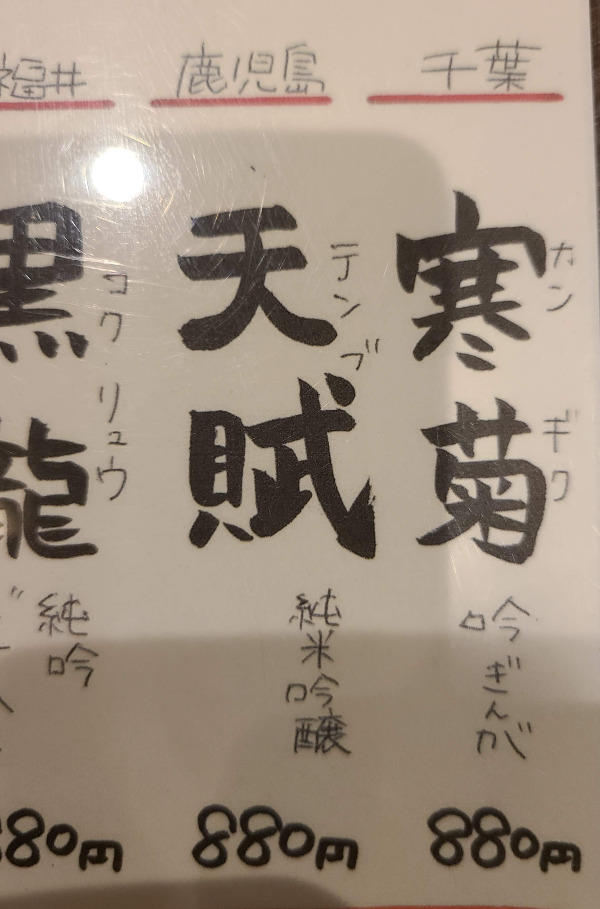 千葉
寒菊
カンギク
吟ぎんが
880円
鹿児島
天賦
テンブ
純米吟醸
880円
福井
黒龍
コクリュウ
純吟
880円